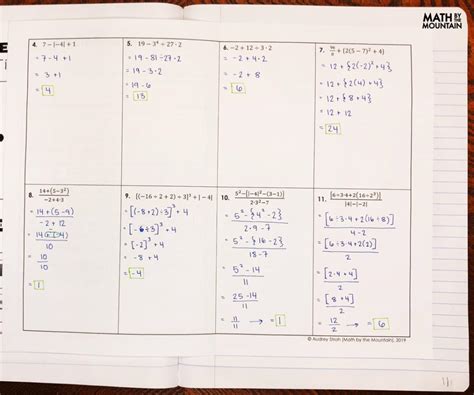 MATH BY THE MOUNTAIN
4. 7 − |−4| + 1
= 7 - 4 + 1
= 3 + 1
= 4
5. 19 − 3⁴ ÷ 27 · 2
= 19 - 81 ÷ 27 · 2
= 19 - 3 · 2
= 19 - 6
= 13
6. −2 + 12 ÷ 3 · 2
= -2 + 4 · 2
= -2 + 8
= 6
+ {2(5 − 7)² + 4}
= 12 + {2(-2)² + 4}
= 12 + {2(4) + 4}
= 12 + {8 + 4}
= 12 + 12
= 24
8. 14+(5−3²) / −2+4·3
= 14 + (5 - 9) / -2 + 12
= 10 / 10
= 1
9. [(−16 ÷ 2 + 2) ÷ 3]³ + |−4|
= [(-8 + 2) ÷ 3]³ + 4
= [-6 ÷ 3]³ + 4
= [-2]³ + 4
= -8 + 4
= -4
10. 5²−{|−4|²−(3−1)} / 2·3²−7
= 5² - {4² - 2} / 2 · 9 - 7
= 5² - {16 - 2} / 18 - 7
= 5² - 14 / 11
= 25 - 14 / 11
= 11 / 11 → = 1
11. [6÷3·4+2(16−2³)] / |4|−|−2|
= [6 ÷ 3 · 4 + 2(16 - 8)] / 4 - 2
= [2 · 4 + 4] / 2
= [8 + 4] / 2
= 12 / 2 → = 6
© Audrey Stroh (Math by the Mountain), 2019